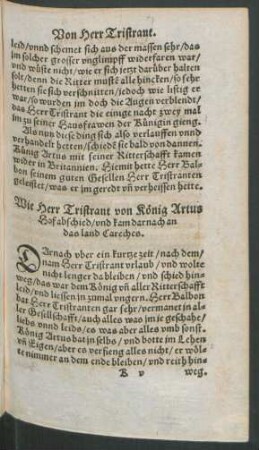 Von Herr Tristrant.
leid/vnnd schemet sich aus der massen sehr/das
jm solcher grosser vnglimpff widerfaren war/
vnd wüste nicht/wie er sich jetzt darüber halten
solt/denn die Ritter muste alle hincken/so sehr
hetten sie sich verschnitten/jedoch wie listig er
war/so wurden jm doch die Augen verblendt/
das Herr Tristrant die einige nacht zwey mal
jm zu seiner Hausfrawen der Künigin gieng.
Als nun diese ding sich also verlauffen vnnd
verhandelt hetten/schiedẽ sie bald von dannen.
König Artus mit seiner Ritterschafft kamen
wider in Britannien. Hiemit hette Herr Bal-
bon seinem guten Gesellen Herr Tristranten
geleistet/was er jm geredt vñ verheissen hette.
Wie Herr Tristrant von König Artus
Hof abschied/vnd kam darnach an
das land Careches.
Darnach vber ein kurtze zeit/nach dem/
nam Herr Tristrant vrlaub/vnd wolte
nicht lenger da bleiben/vnd schied hin-
weg/das war dem König vñ aller Ritterschafft
leid/vnd liessen jn zumal vngern. Herr Balbon
bat Herr Tristranten gar sehr/vermanet in al-
ler Gesellschafft/auch alles was jm je geschahe/
liebs vnnd leids/es was aber alles vmb sonst.
König Artus bat jn selbs/vnd botte jm Lehen
vñ Eigen/aber es verfieng alles nicht/er wöl-
te nimmer an dem ende bleiben/vnd reith hin-
K v weg.